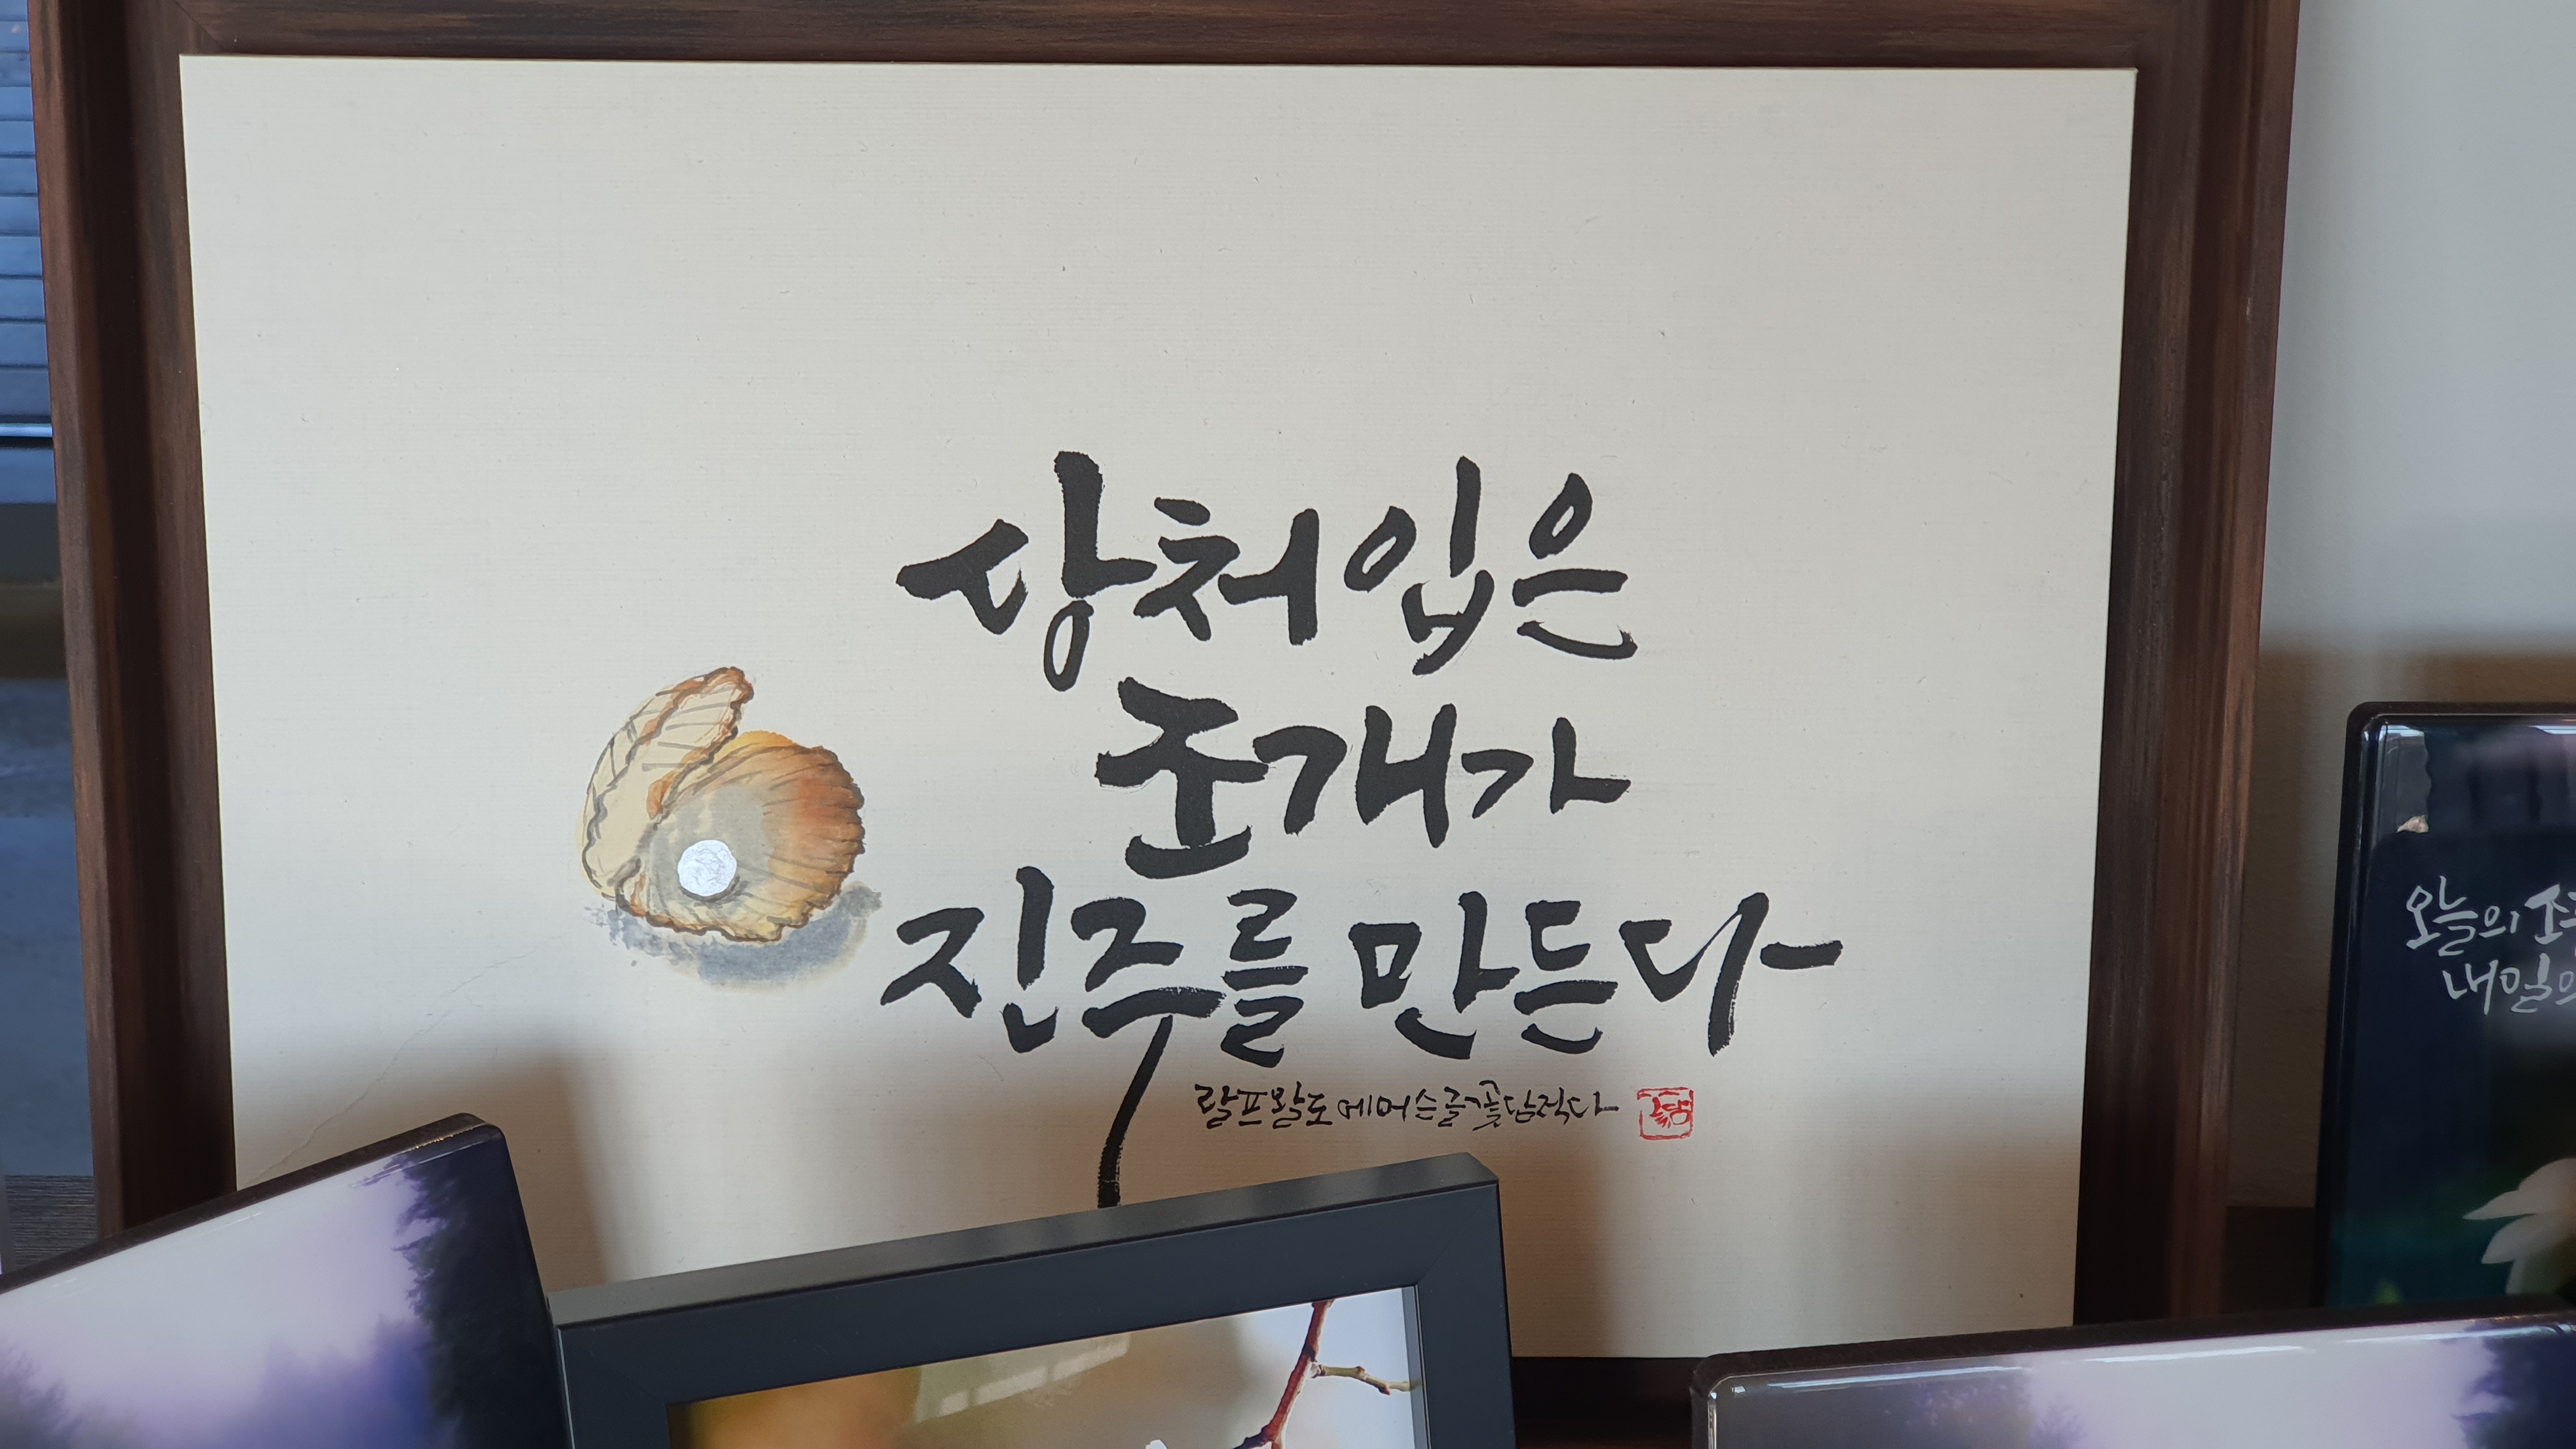 상처입은
조개가
진주를 만든다
랄프 왈도 에머슨 글 꽃담 적다
오늘의
내일의